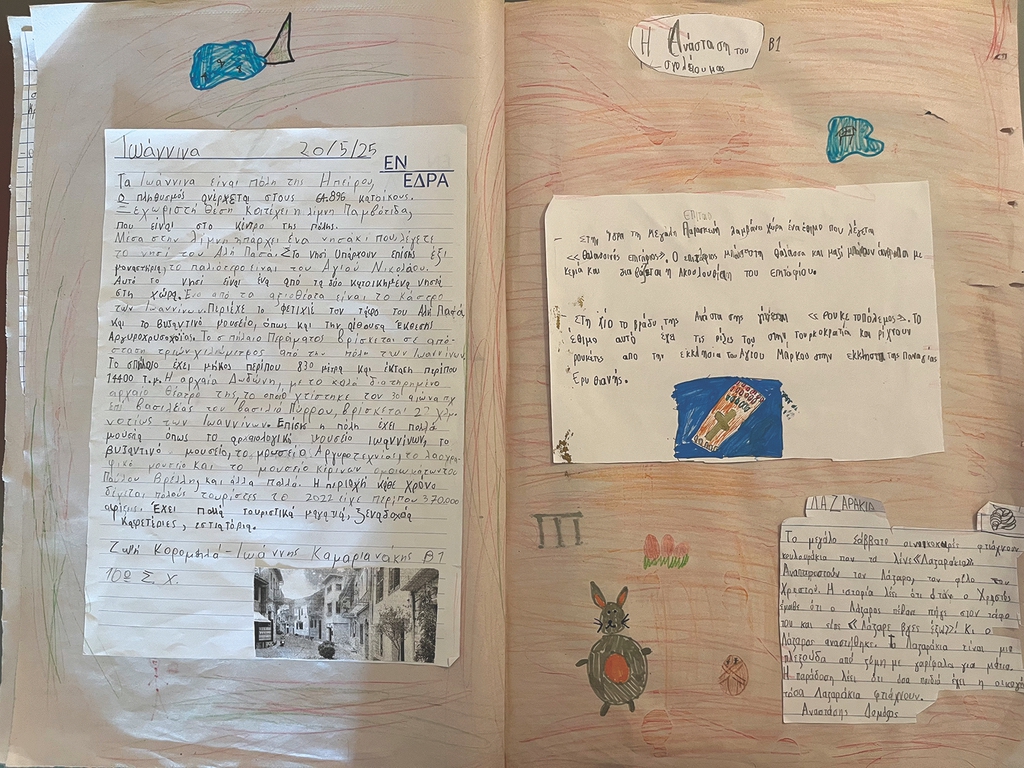 Ιωάννινα 20/5/25
ΕΝ
ΕΔΡΑ
Τα Ιωάννινα είναι πόλη της Ηπείρου,
ο πληθυσμός ανέρχεται στους 64.896 κατοίκους.
Ξεχωριστή θέση κατέχει η λίμνη Παμβώτιδα,
που είναι στο κέντρο της πόλης.
Μέσα στην λίμνη υπάρχει ένα νησάκι που λέγετε
το νησί του Αλή Πασά. Στο νησί υπάρχουν επίσης έξι
μοναστήρια, το παλιότερο είναι του Αγίου Νικολάου.
Αυτό το νησί είναι ένα από τα δύο κατοικημένα νησιά
στη χώρα. Ένα από τα αξιοθέατα είναι το Κάστρο
των Ιωαννίνων. Περιέχει το Φετιχιέ τον τάφο του Αλή Πασά,
και το βυζαντινό μουσείο, όπως και την αίθουσα έκθεση
Αργυροχρυσοχοΐας. Το σπήλαιο Περάματος βρίσκεται σε από-
σταση τριών χιλιόμετρος από την πόλη των Ιωαννίνων.
Το σπήλαιο έχει μήκος περίπου 830 μέτρα και έκταση περίπου
14400 τ.μ. Η αρχαία Δωδώνη, με το καλά διατηρημένο
αρχαίο θέατρο της, το οποίο χτίστηκε τον 3ο αιώνα πχ
επί βασιλείας του βασιλιά Πύρρου, βρίσκεται 22 χλμ
νοτίως των Ιωαννίνων. Επίσης η πόλη έχει πολλά
μουσεία όπως το αρχαιολογικό μουσείο Ιωαννίνων, το
βυζαντινό μουσείο, το μουσείο Αργυροτεχνίας, το λαογρα-
φικό μουσείο και το μουσείο κέρινων ομοιωμάτων του
Παύλου Βρέλλη και άλλα πολλά. Η περιοχή κάθε χρόνο
δέχεται πολούς τουρίστες το 2022 είχε περίπου 370.000
αφίξεις. Έχει πολλά τουριστικά μαγαζιά, ξενοδοχεία
καφετέριες, εστιατόρια.
Ζωή Κορομηλά - Ιωάννης Καμαριανάκης Β1
10ο Σ. Χ.
Η Ανάσταση του Β1
σχολείου μας
Στην Ύδρα τη Μεγάλη Παρασκευή λαμβάνει χώρα ένα έθιμο που λέγεται
«Θαλασσινός επιτάφιος». Ο επιτάφιος μπαίνει στη θάλασσα και μαζί μπαίνουν άνθρωποι με
κεριά και διαβάζεται η Ακολουθία του επιταφίου.
Στη Χίο το βράδυ της Ανάστασης γίνεται «Ρουκετοπόλεμος». Το
έθιμο αυτό έχει τις ρίζες του στην Τουρκοκρατία και ρίχνουν
ρουκέτες από την εκκλησία του Αγίου Μάρκου στην εκκλησία της Παναγίας
Ερυθιανής.
ΛΑΖΑΡΑΚΙΑ
Το μεγάλο Σάββατο οι νοικοκυρές φτιάχνουν
κουλουράκια που τα λένε «Λαζαράκια»
Αναπαριστούν τον Λάζαρο, τον φίλο του
Χριστού. Η ιστορία λέει ότι όταν ο Χριστός
έμαθε ότι ο Λάζαρος πέθανε πήγε στον τάφο
του και είπε «Λάζαρε βγες έξω»! Κι ο
Λάζαρος αναστήθηκε. Τα Λαζαράκια είναι μια
πλεξούδα από ζύμη με γαρίφαλα για μάτια.
Η παράδοση λέει ότι όσα παιδιά έχει η οικογέ
τόσα Λαζαράκια φτιάχνουν.
Αναστάσης